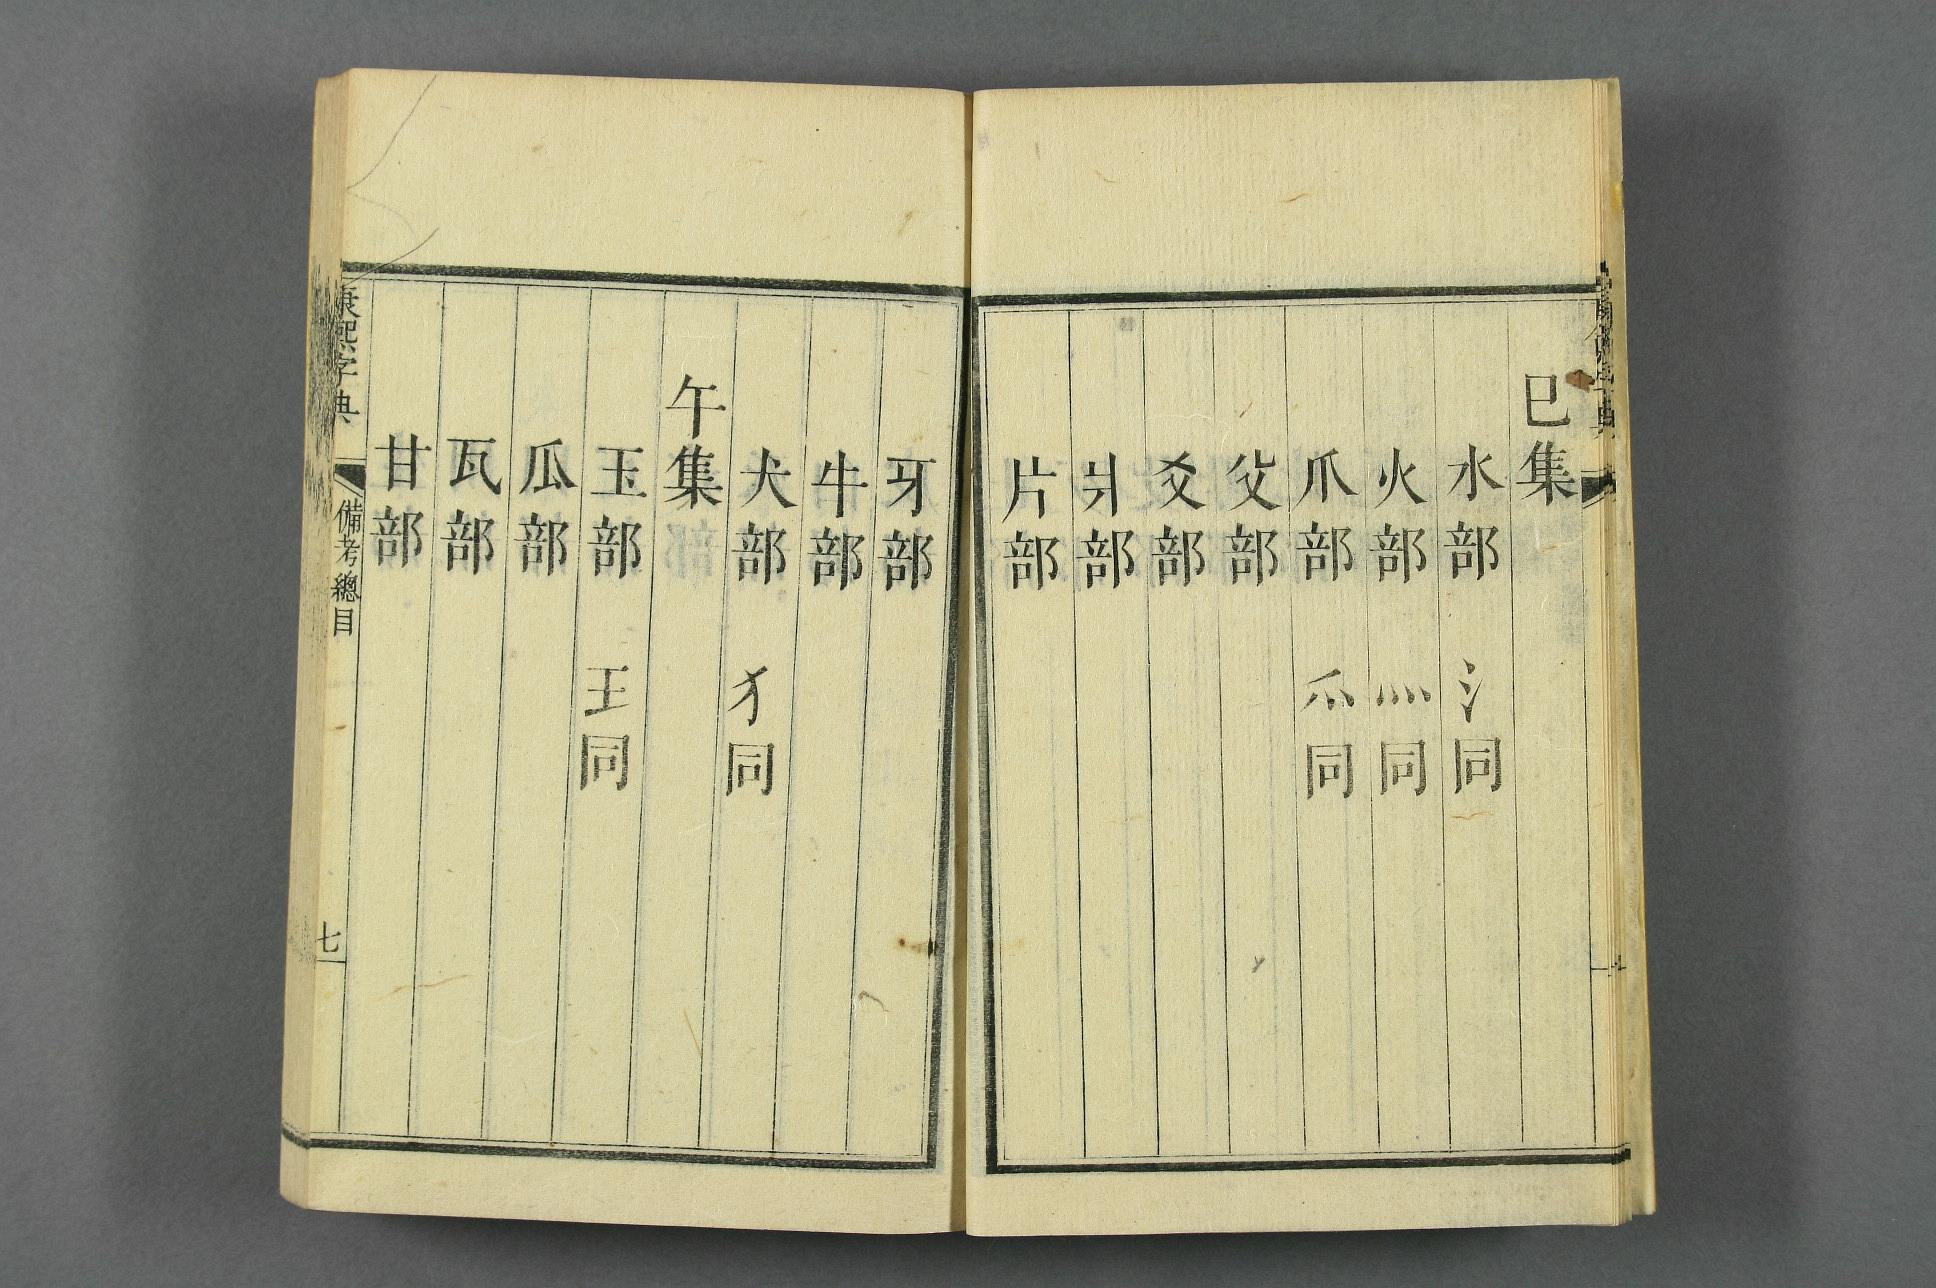 巳集
水部 氵同
火部 灬同
爪部 爫同
父部
爻部
爿部
片部
牙部
牛部
犬部 犭同
午集
玉部 王同
瓜部
瓦部
甘部
康熙字典
備考總目
七